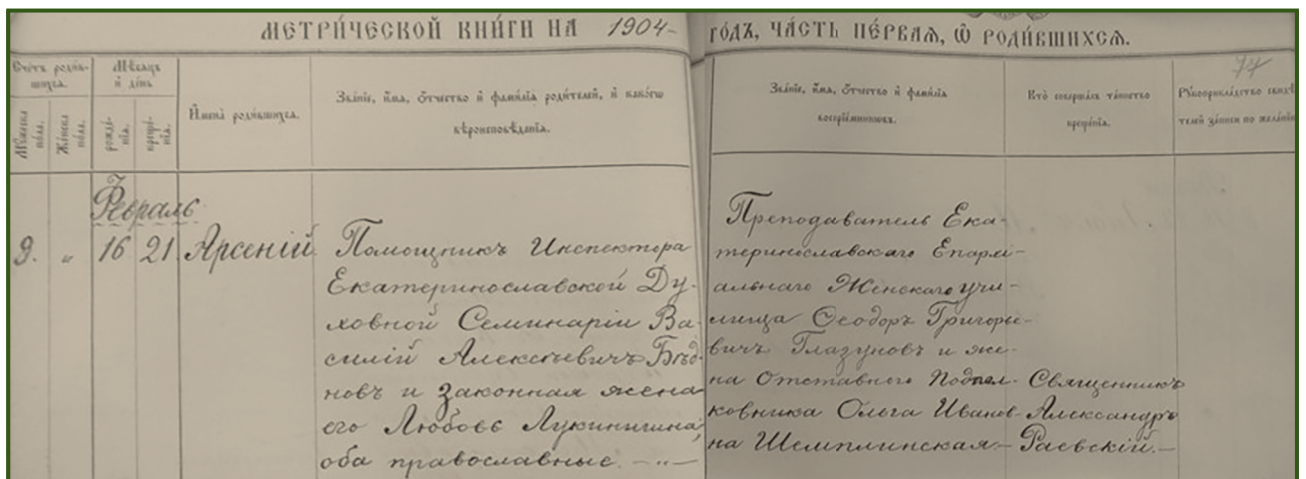 МЕТРИ́ЧЕСКОЙ КНИ́ГИ НА 1904-
ГО́ДЪ, ЧА́СТЬ ПЕ́РВАЯ, Ѡ҆ РОДИ́ВШИХСЯ.
74
Сче́тъ роди́в-
шихся.
Му́жеска по́ла.
Же́нска по́ла.
Мѣ́сяцъ
и҆ де́нь
рожде́-
нїя.
креще́-
нїя.
И҆мена̀ роди́вшихся.
Зва́нїе, и҆́мя, ѻ҆́тчество и҆ фами́лїя роди́телей, и҆ како́гѡ
вѣроисповѣ́данїя.
Зва́нїе, и҆́мя, ѻ҆́тчество и҆ фами́лїя
воспрїе́мниковъ.
Кто̀ соверша́лъ та́инство
креще́нїя.
Рꙋкоприкла́дство свидѣ́-
телей за́писи по жела́нїю
Февраль
9. " 16 21 Арсеній.
Помощникъ Инспектора
Екатеринославской Ду-
ховной Семинаріи Ва-
силій Алексѣевичъ Бѣд-
новъ и законная жена
его Любовь Лукинична,
оба православные. — " —
Преподаватель Ека-
теринославскаго Епархі-
альнаго Женскаго учи-
лища Ѳеодоръ Григорье-
вичъ Глазуновъ и же-
на Отставного Подпол-
ковника Ольга Иванов-
на Шемплинская.—
Священникъ
Александръ
Раевскій.—